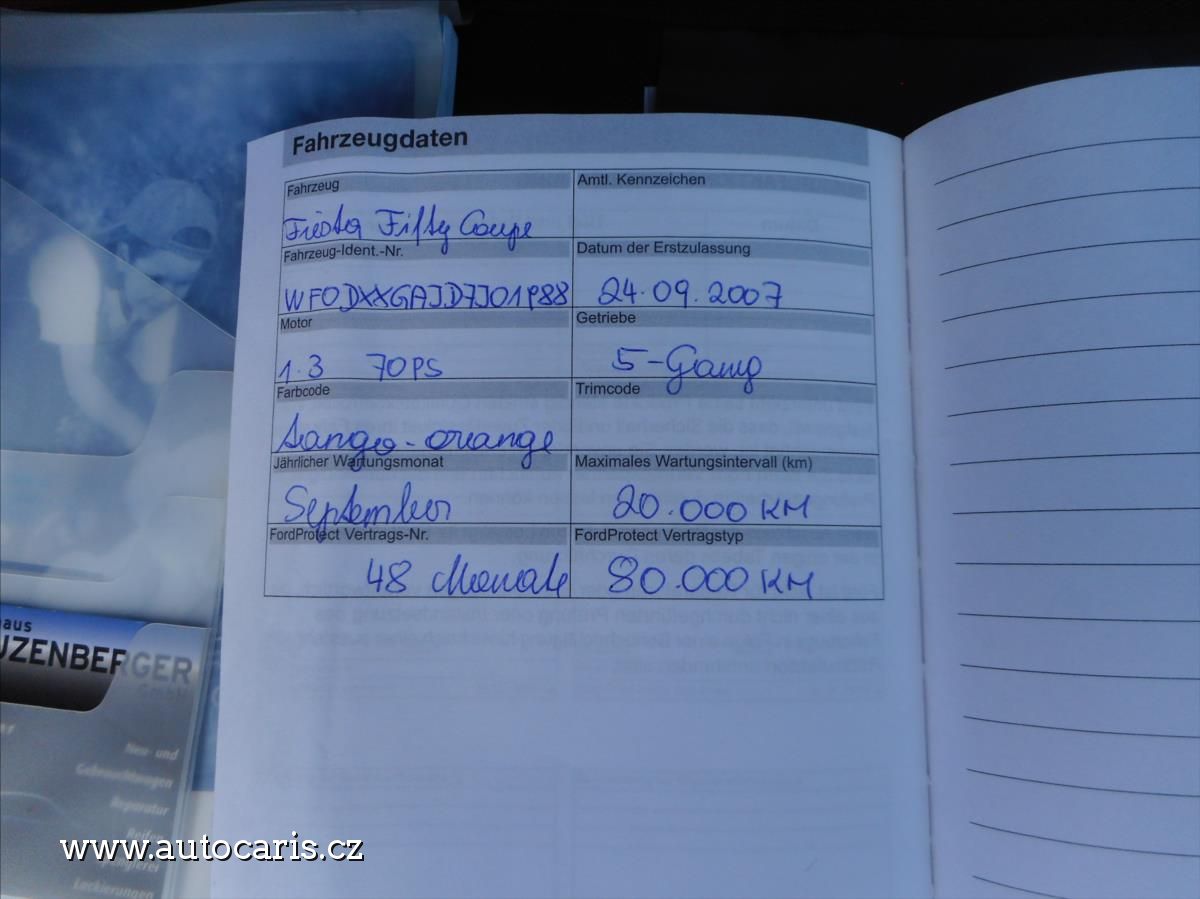 Fahrzeugdaten
Fahrzeug
Amtl. Kennzeichen
Fiesta Fifty Coupe
Fahrzeug-Ident.-Nr.
Datum der Erstzulassung
WF0DXXGAJD7J01988
24.09.2007
Motor
Getriebe
1.3 70PS
5-Gang
Farbcode
Trimcode
orange
Jährlicher Wartungsmonat
Maximales Wartungsintervall (km)
September
20.000 KM
FordProtect Vertrags-Nr.
FordProtect Vertragstyp
48 Monate
80.000 KM
haus
UZENBERGER
GmbH
Neu- und
Gebrauchtwagen
Reparatur
Reifen
Lackierungen
www.autocaris.cz